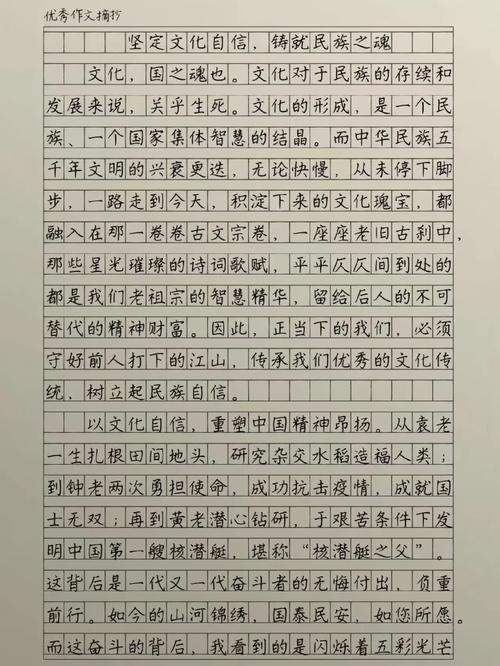 优秀作文摘抄
坚定文化自信，铸就民族之魂
文化，国之魂也。文化对于民族的存续和
发展来说，关乎生死。文化的形成，是一个民
族、一个国家集体智慧的结晶。而中华民族五
千年文明的兴衰更迭，无论快慢，从未停下脚
步，一路走到今天，积淀下来的文化瑰宝，都
融入在那一卷卷古文宗卷，一座座老旧古刹中，
那些星光璀璨的诗词歌赋，平平仄仄间到处的
都是我们老祖宗的智慧精华，留给后人的不可
替代的精神财富。因此，正当下的我们，必须
守好前人打下的江山，传承我们优秀的文化传
统，树立起民族自信。
以文化自信，重塑中国精神昂扬。从袁老
一生扎根田间地头，研究杂交水稻造福人类；
到钟老两次勇担使命，成功抗击疫情，成就国
士无双；再到黄老潜心钻研，于艰苦条件下发
明中国第一艘核潜艇，堪称“核潜艇之父”。
这背后是一代又一代奋斗者的无悔付出，负重
前行。如今的山河锦绣，国泰民安，如您所愿。
而这奋斗的背后，我看到的是闪烁着五彩光芒